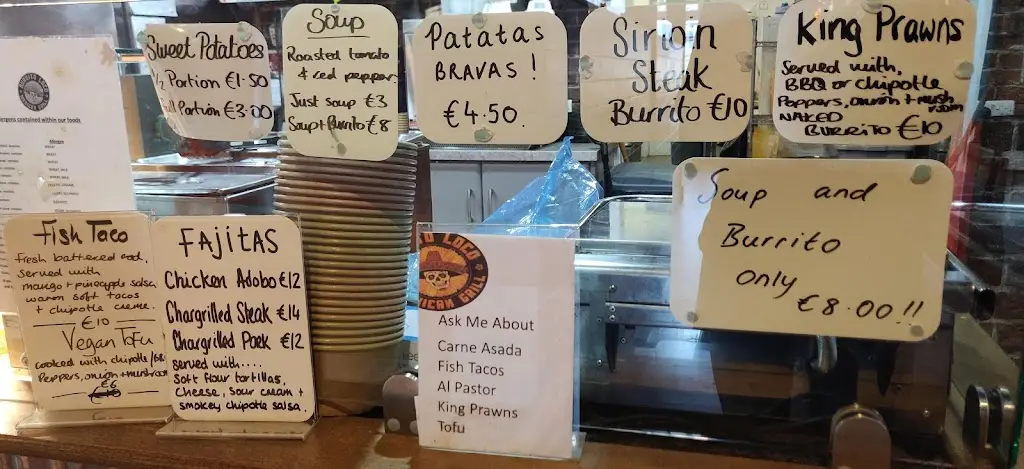 Sweet Potatoes
1/2 Portion €1.50
Full Portion €3.00
Soup
Roasted tomato
& red pepper
Just soup €3
Soup + Burrito €8
Patatas
BRAVAS !
€4.50
Sirloin
Steak
Burrito €10
King Prawns
Served with,
BBQ or chipotle
Peppers, onion + mushroom
NAKED
BURRITO €10
Soup and
Burrito
only
€8.00!!
allergens contained within our foods
Fish Taco
fresh battered cod,
served with
mango + pineapple salsa,
warm soft tacos
+ chipotle creme.
€10
Vegan Tofu
cooked with chipotle/BBQ
Peppers, onion + mushroom
€6
FAJITAS
Chicken Adobo €12
Chargrilled Steak €14
Chargrilled Pork €12
served with....
Soft flour tortillas,
Cheese, sour cream +
smokey chipotle salsa.
LOCO
MEXICAN GRILL
Ask Me About
Carne Asada
Fish Tacos
Al Pastor
King Prawns
Tofu